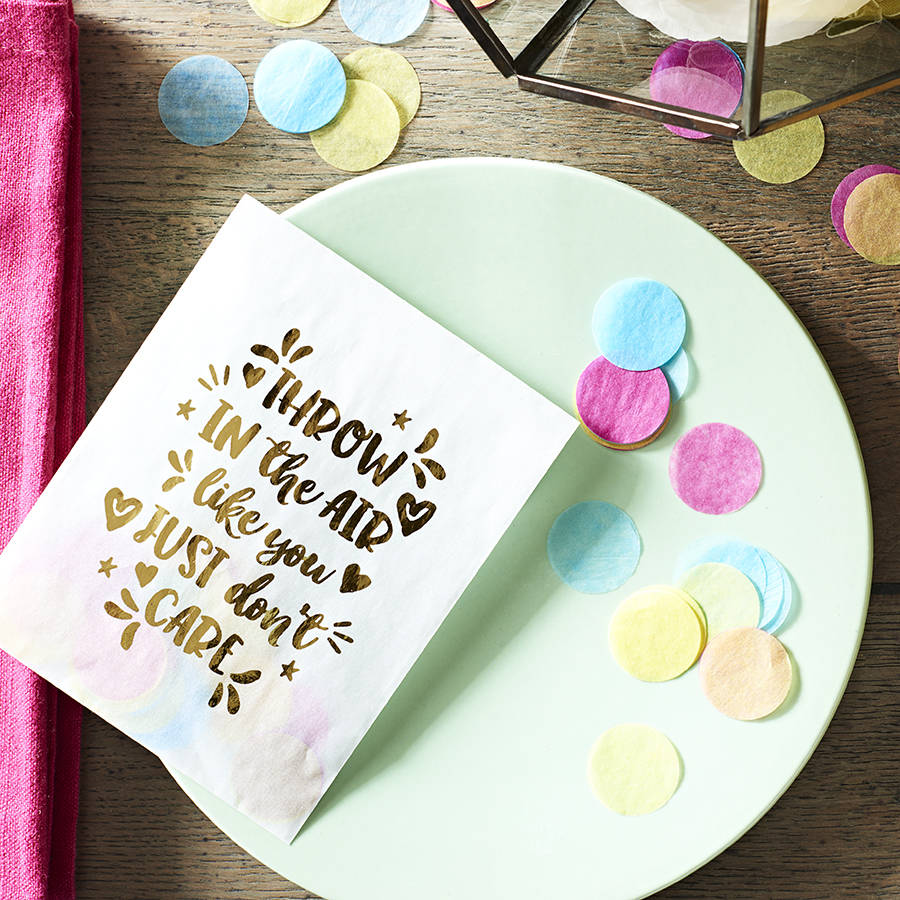 THROW
IN the AIR
like you
JUST don't
CARE